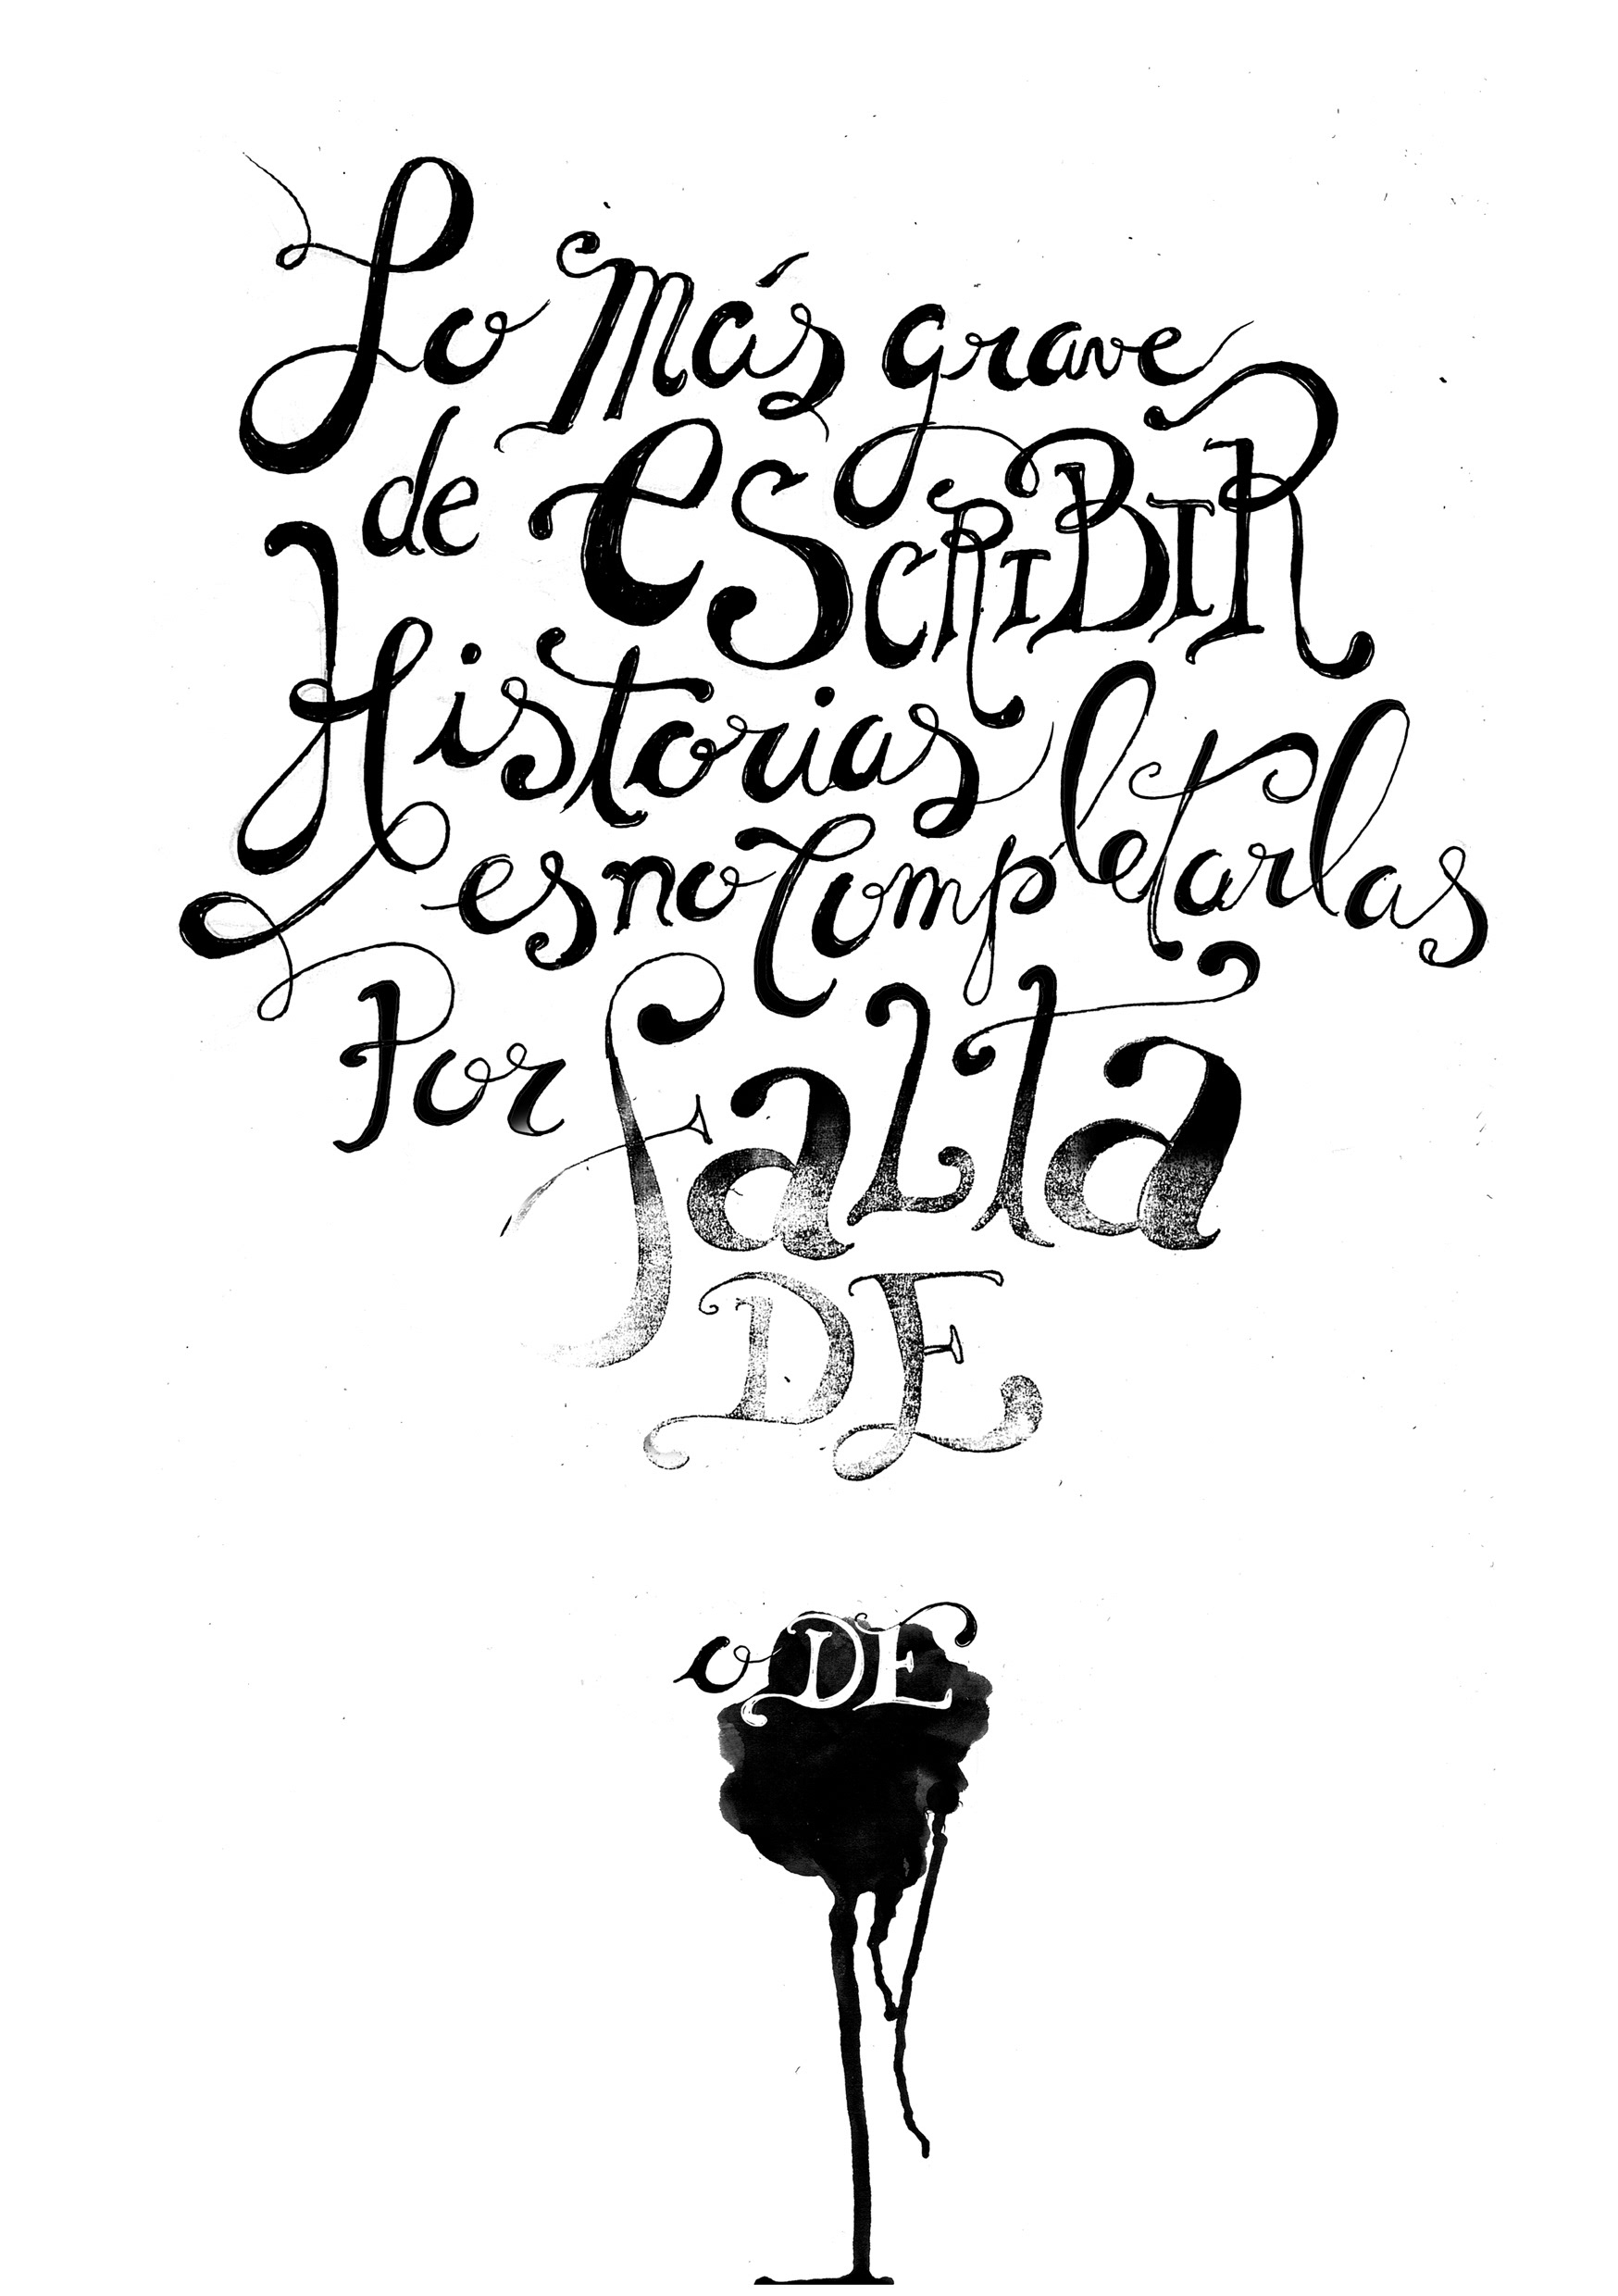 Lo más grave
de eSCRIBIR
Historias
es no Completarlas
Por faLta
DE
o DE